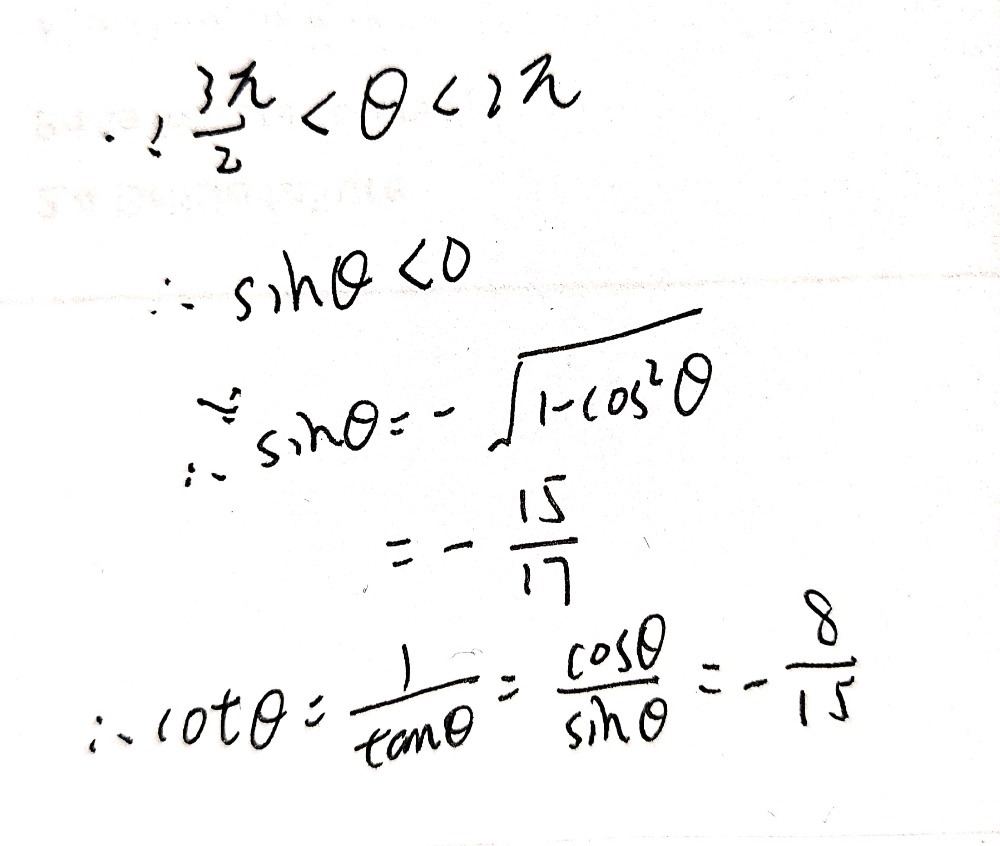 ∵ 3π/2 < θ < 2π
∴ sinθ < 0
∴ sinθ = - √(1-cos²θ)
= - 15/17
∴ cotθ = 1/tanθ = cosθ/sinθ = - 8/15